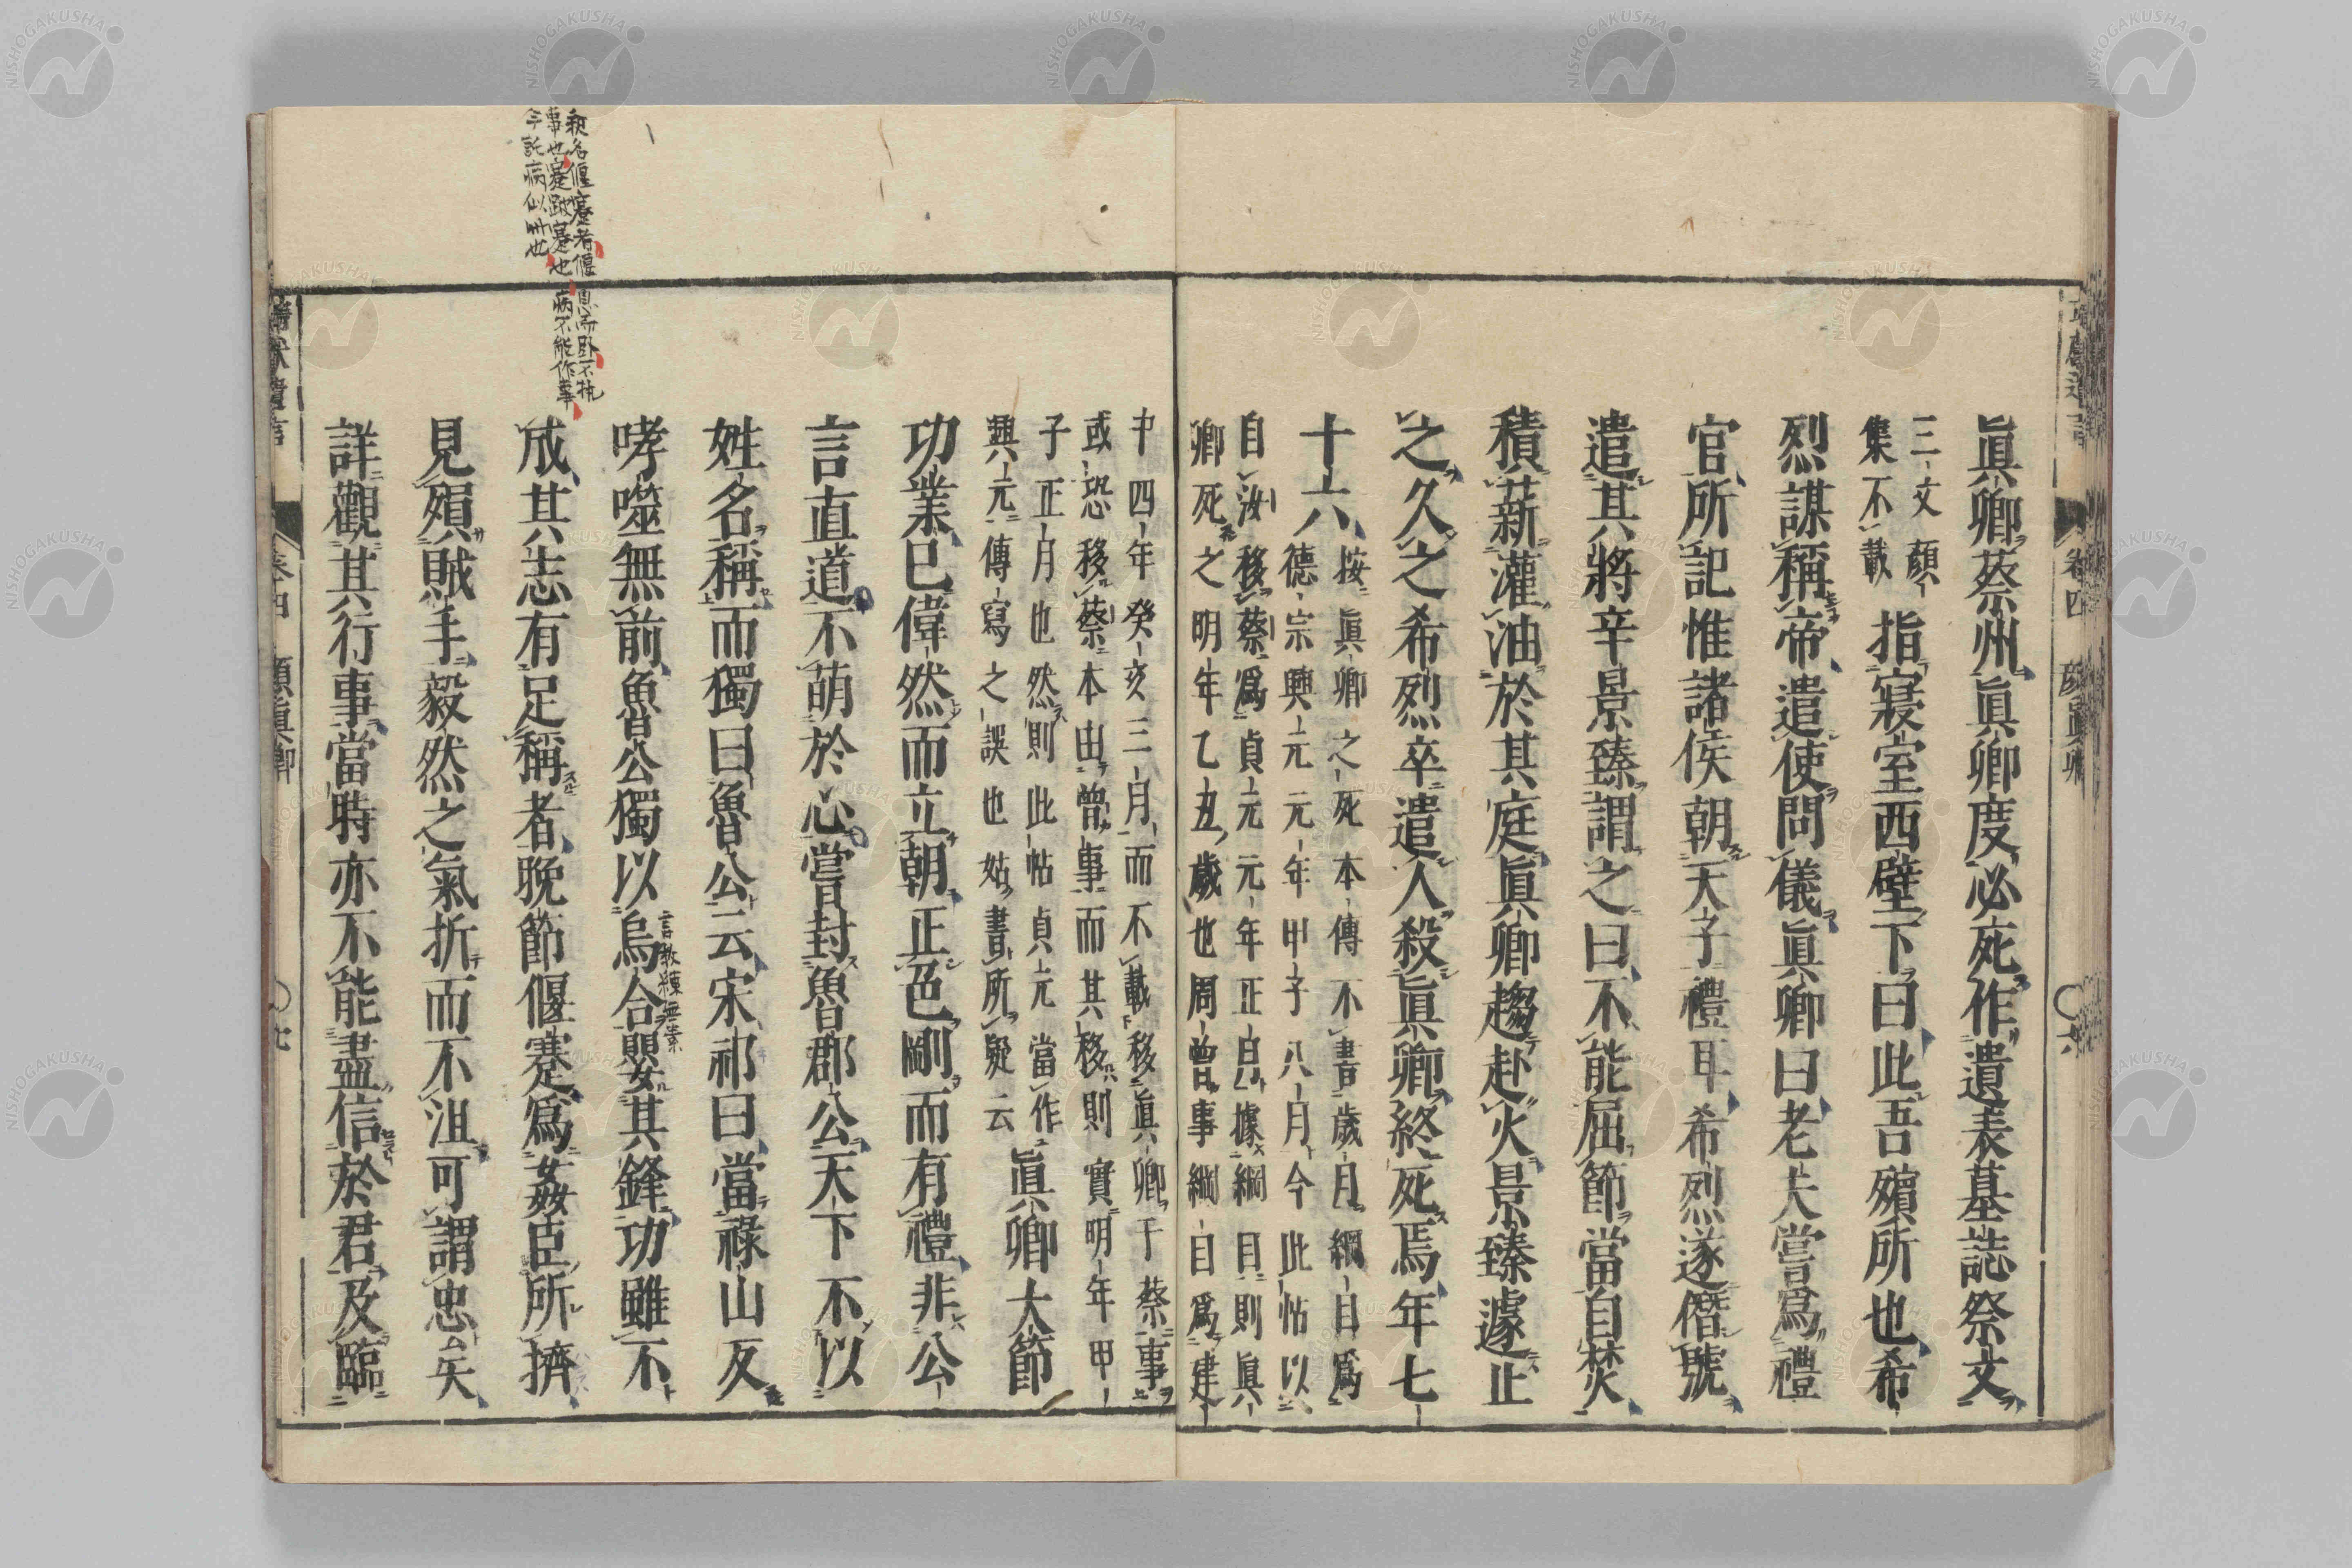 眞卿蔡州眞卿度必死作遺表墓誌祭文
三文顏
集不載
指寢室西壁下曰此吾殯所也希
烈謀稱帝遣使問儀眞卿曰老夫嘗爲禮
官所記惟諸侯朝天子禮耳希烈遂僭號
遣其將辛景臻謂之曰不能屈節當自焚
積薪灌油於其庭眞卿趨赴火景臻遽止
之久之希烈卒遣人殺眞卿終死焉年七
十六
按眞卿之死本傳不書歲月綱目爲
德宗興元元年甲子八月今此帖以
自汝移蔡爲貞元元年正月據綱目則眞
卿死之明年乙丑歲也周曾事綱目爲建
中四年癸亥三月而不載移眞卿于蔡事
或恐移蔡本由曾事而其移則實明年甲
子正月也然則此帖貞元當作
興元傳寫之誤也姑書所疑云
眞卿大節
功業已偉然而立朝正色剛而有禮非公
言直道不萌於心嘗封魯郡公天下不以
姓名稱而獨曰魯公云宋祁曰當祿山反
哮噬無前魯公獨以烏合嬰其鋒功雖不
言教練無素
成其志有足稱者晚節偃蹇爲姦臣所擠
見殞賊手毅然之氣折而不沮可謂忠矣
詳觀其行事當時亦不能盡信於君及臨
釈名偃蹇者偃息而臥不執
事也蹇跛蹇也病不能作事
今託病似此也
卷四 顏眞卿
六
靖獻遺言
卷四 顏眞卿
七
NISHOGAKUSHA